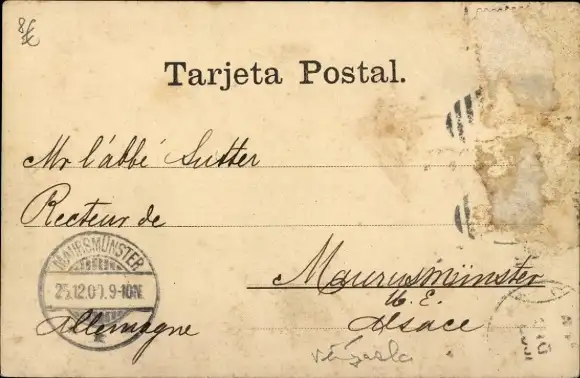 Tarjeta Postal.
Mr l'abbé Sutter
Recteur de
Maursmünster
U. E.
Allemagne
Alsace
MAURSMÜNSTER
25.12.00.9-10N.